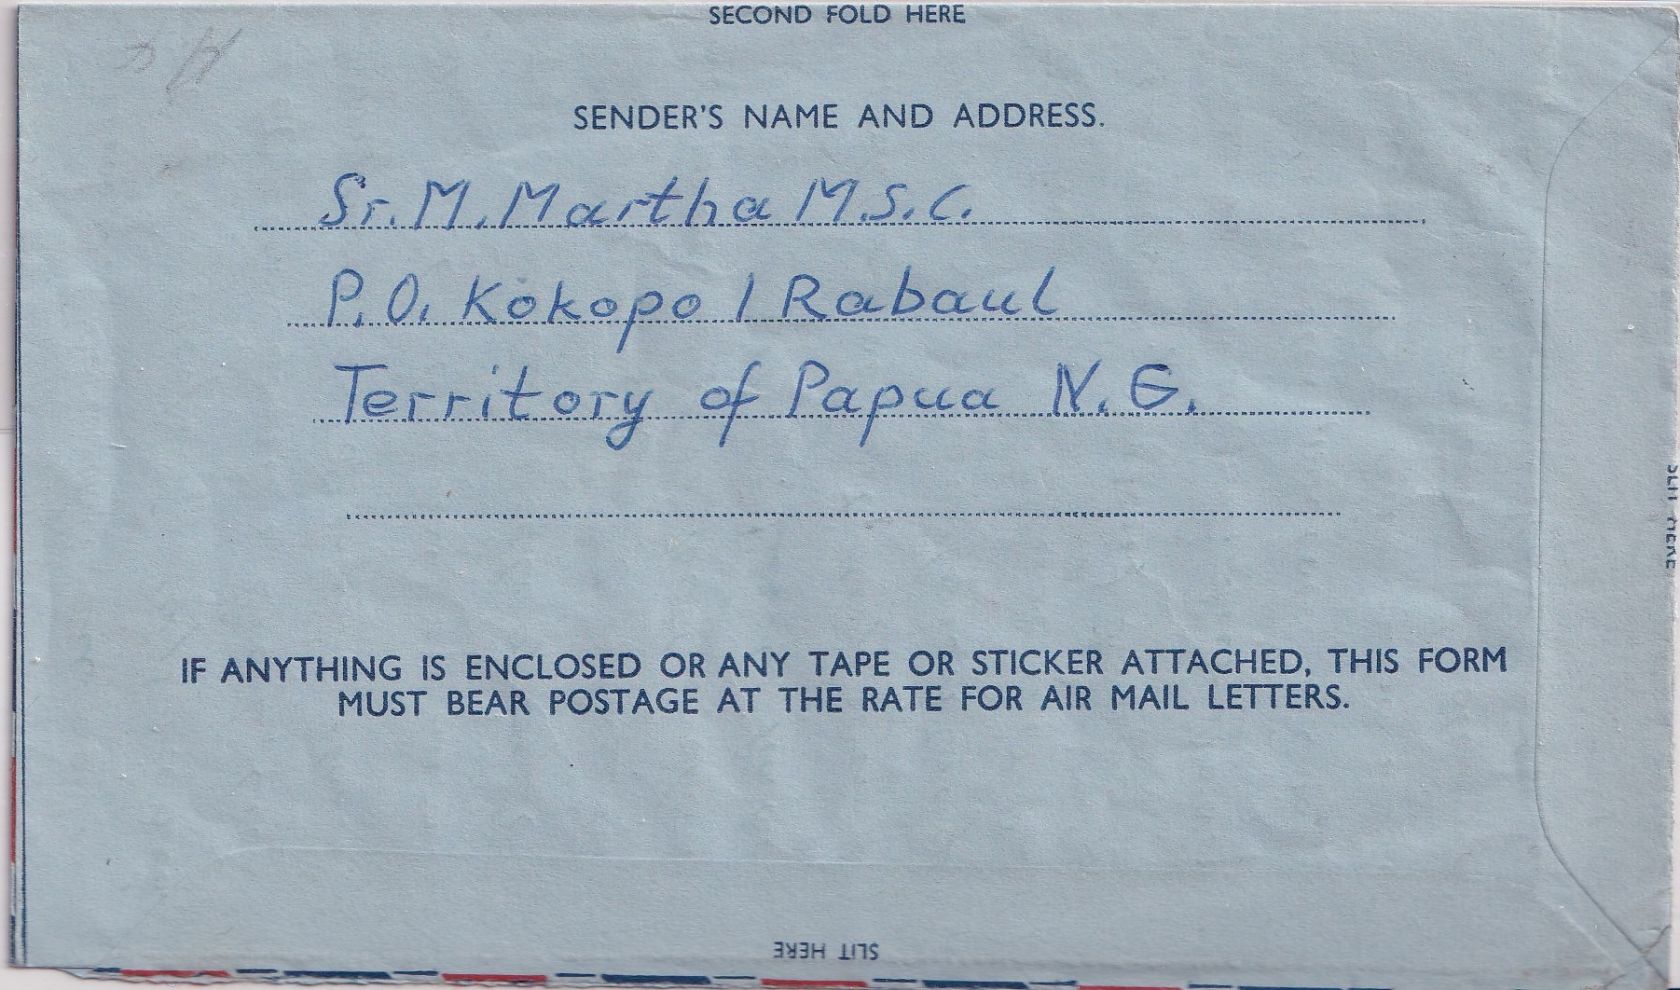 SECOND FOLD HERE
SENDER'S NAME AND ADDRESS.
Sr. M. Martha M.S.C.
P.O. Kokopo / Rabaul
Territory of Papua N.G.
SLIT HERE
IF ANYTHING IS ENCLOSED OR ANY TAPE OR STICKER ATTACHED, THIS FORM
MUST BEAR POSTAGE AT THE RATE FOR AIR MAIL LETTERS.
SLIT HERE